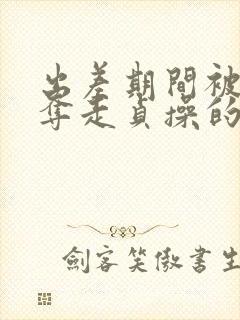 出差期間被
奪走貞操的
劍客笑傲書生